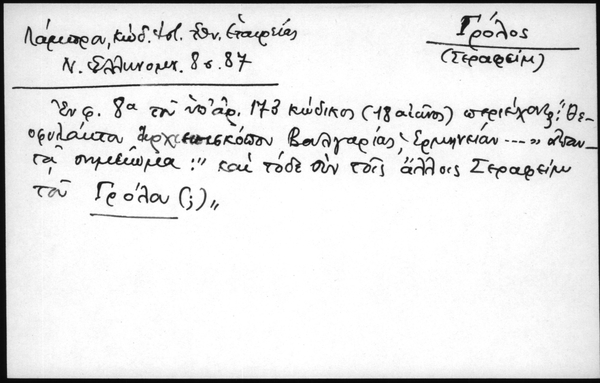 Λάμπρου, κώδ. Ἱστ. Ἐθν. Ἑταιρείας
Ν. Ἑλληνομν. 8 σ. 87
Γρόλος
(Σεραφείμ)
Ἐν φ. 8α τοῦ ὑπ' ἀρ. 173 κώδικος (18 αἰῶνος) περιέχοντος: Θε-
οφυλάκτου ἀρχιεπισκόπου Βουλγαρίας, Ἑρμηνείαν ---" ἀπαν-
τᾷ σημείωμα :" καὶ τόδε σὺν τοῖς ἄλλοις Σεραφείμ
τοῦ Γρόλου (;)"